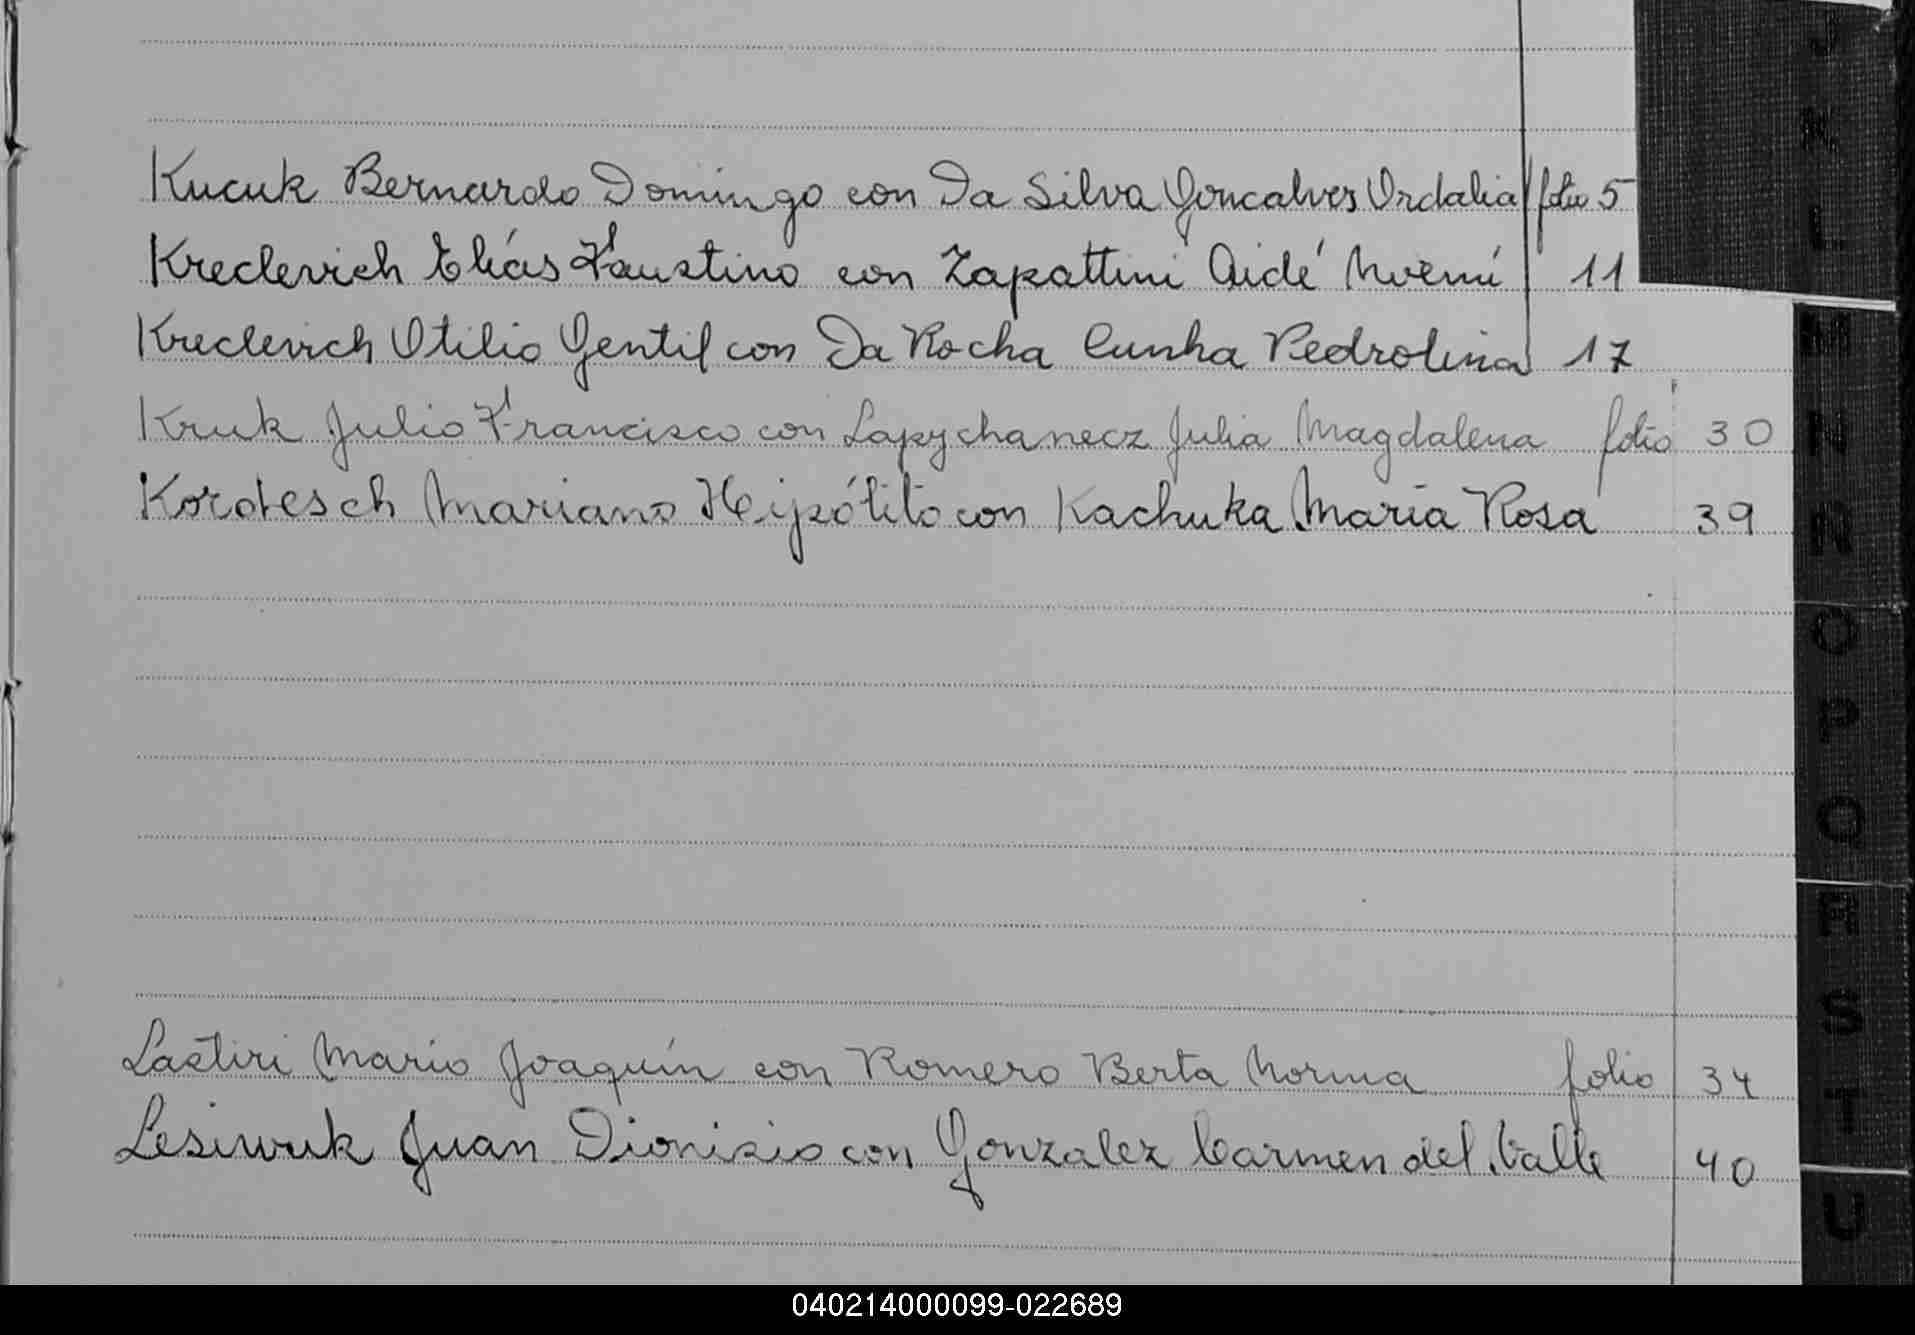 Kucuk Bernardo Domingo con Da Silva Goncalves Ordalia folio 5
Kreclevich Elías Faustino con Zapattini Aidé Noemí 11
Kreclevich Otilio Gentil con Da Rocha Cunha Pedrolina 17
Kruk Julio Francisco con Lapychanecz Julia Magdalena folio 30
Kordesch Mariano Hipólito con Kachuka María Rosa 39
Lastiri Mario Joaquín con Romero Berta Norma folio 34
Lesiwuk Juan Dionisio con Gonzalez Carmen del Valle 40
J
K
L
M
N
Ñ
O
P
Q
R
S
T
U
040214000099-022689